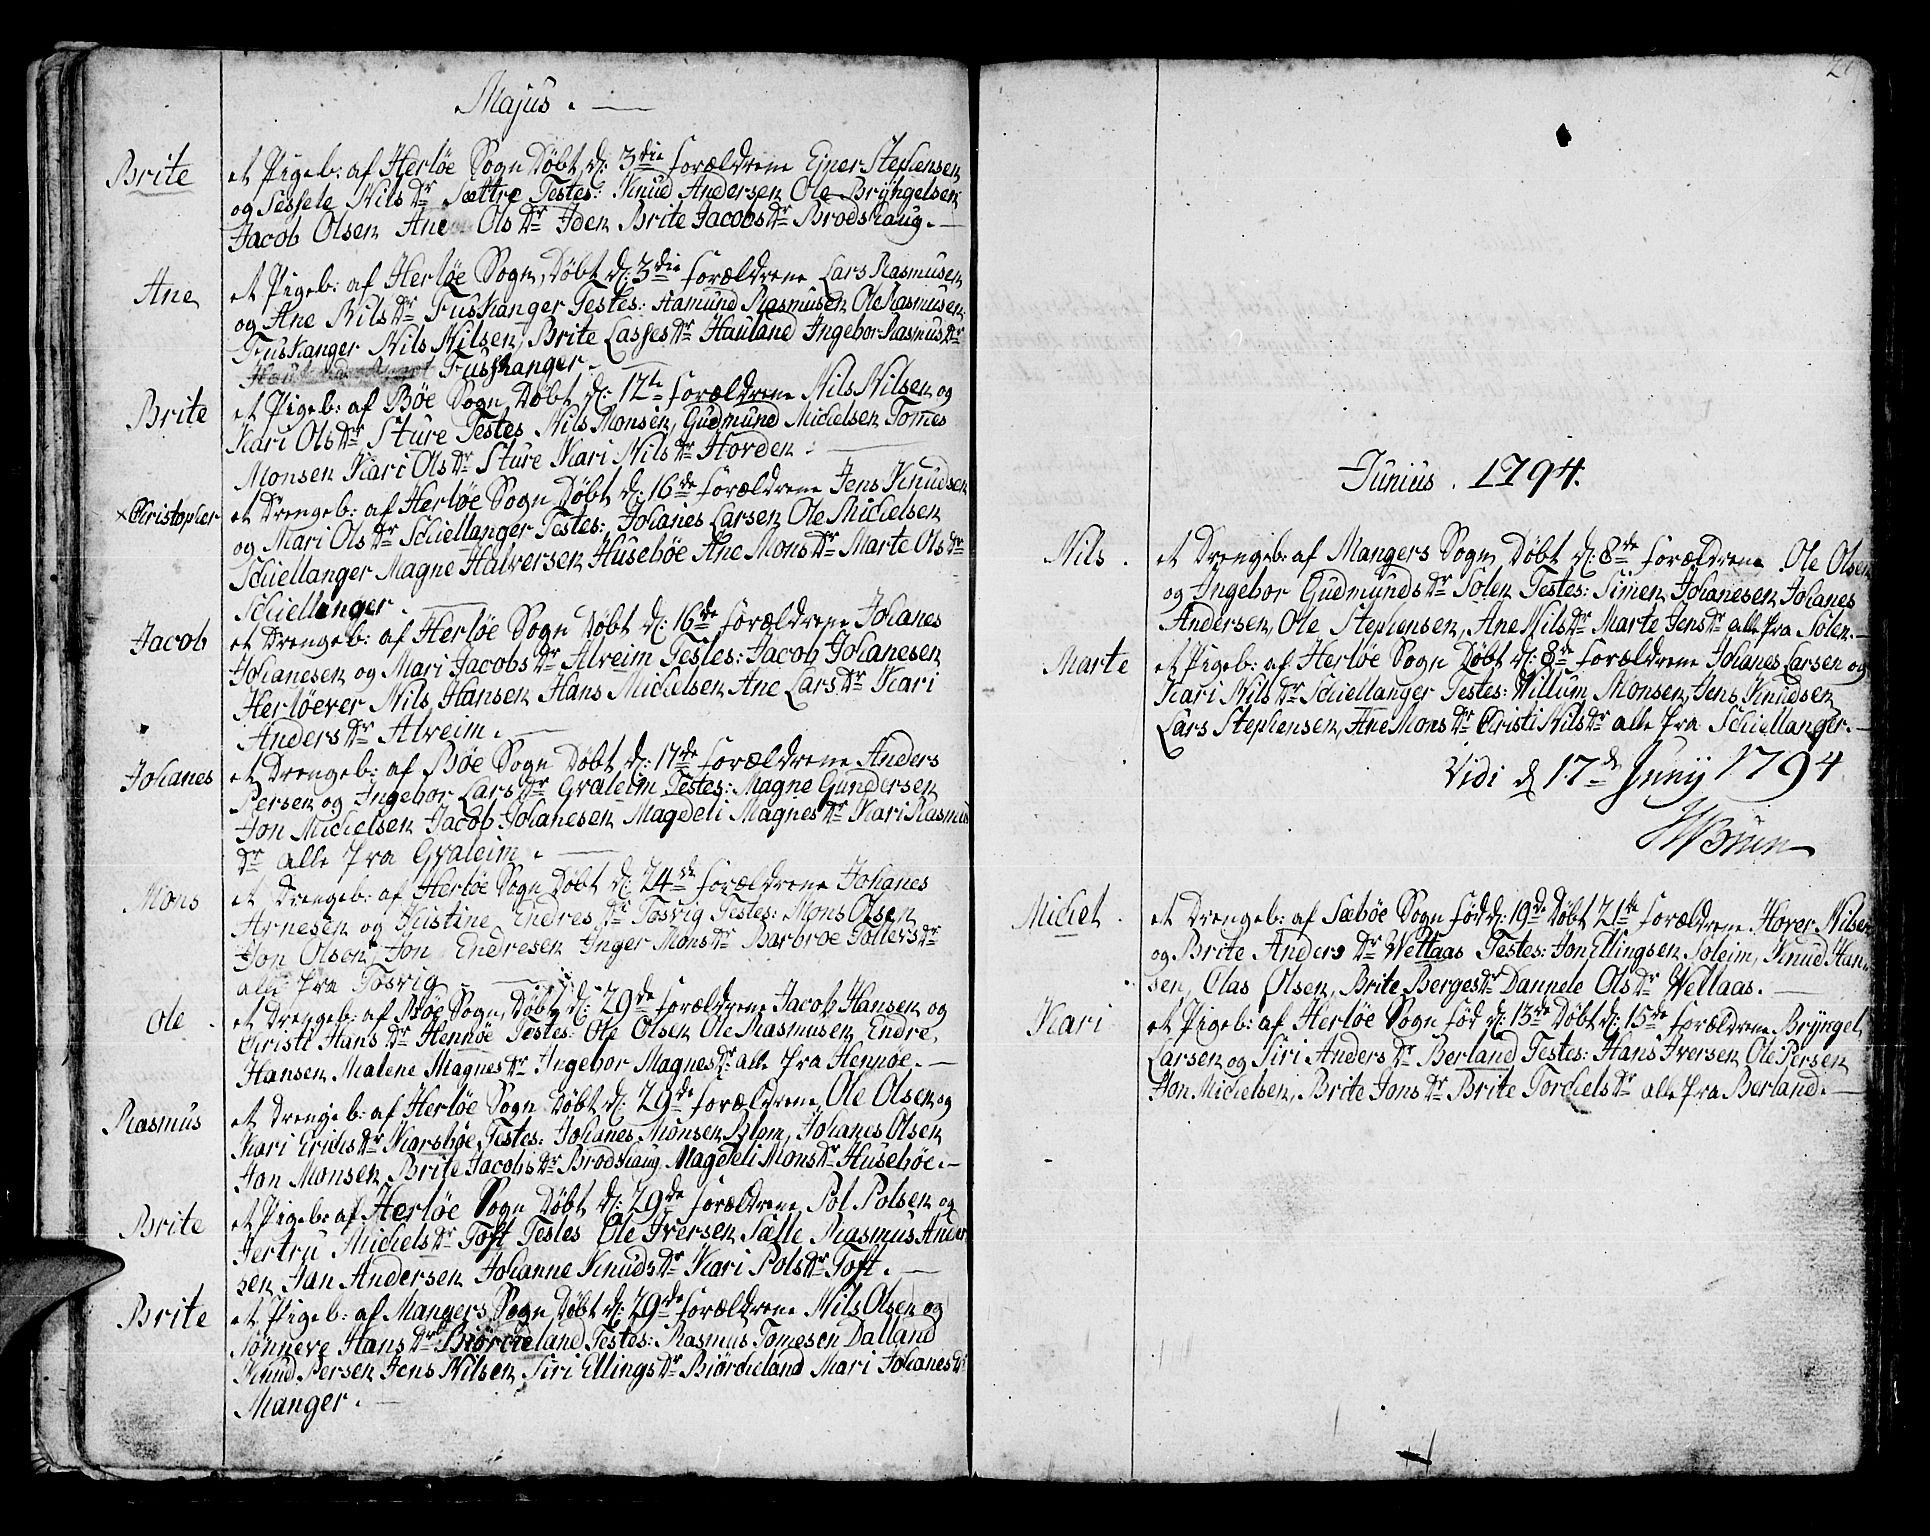 Majus.
Brite
et Pigeb: af Herløe Sogn Døbt d: 3die Forældrene Ejner Stephensen
og Sessele Nils Dr Sættre Testes: Knud Andersen Ole Bryngelsen
Jacob Olsen Ane Ols Dr Iden Brite Jacobs Dr Brodshaug.
Ane
et Pigeb: af Herløe Sogn, Døbt d: 3die Forældrene Lars Rasmusen
og Ane Nils Dr Fuskanger Testes: Aamund Rasmusen Ole Rasmusen
Fuskanger Nils Nilsen, Brite Lasses Dr Hauland Ingebor Rasmus Dr
Fusskanger.
Brite
et Pigeb: af Bøe Sogn Døbt d: 12te Forældrene Nils Nilsen og
Kari Ols Dr Sture Testes Nils Monsen, Gudmund Michelsen Tomes
Monsen Kari Ols Dr Sture Kari Nils Dr Horden.
× Christopher
et Drengeb: af Herløe Sogn Døbt d: 16de Forældrene Jens Knudsen
og Mari Ols Dr Schiellanger Testes: Johanes Larsen Ole Michelsen
Schiellanger Magne Halversen Husebøe Ane Mons Dr Marte Ols Dr
Schiellanger.
Jacob
et Drengeb: af Herløe Sogn Døbt d: 16de Forældrene Johanes
Johanesen og Mari Jacobs Dr Alveim Testes: Jacob Johanesen
Herløever Nils Hansen Hans Michelsen Ane Lars Dr Kari
Anders Dr Alveim.
Johanes
et Drengeb: af Bøe Sogn Døbt d: 17de Forældrene Anders
Persen og Ingebor Lars Dr Gvaleim Testes: Magne Gundersen
Jon Michelsen Jacob Johanesen Magdeli Magnes Dr Kari Rasmus
Dr alle fra Gvaleim.
Mons
et Drengeb: af Herløe Sogn Døbt d: 24de Forældrene Johanes
Arnesen og Kristine Endres Dr Tosvig Testes: Mons Olsen
Jon Olsen, Jon Endresen Inger Mons Dr Barbroe Tollevs Dr
alle fra Tosvig
Ole
et Drengeb: af Bøe Sogn, Døbt d: 29de Forældrene Jacob Hansen og
Christi Hans Dr Hennøe Testes: Ole Olsen Ole Rasmusen, Endre
Hansen Malene Magnes Dr Ingebor Magnes Dr: alle fra Hennøe.
Rasmus
et Drengeb: af Herløe Sogn Døbt d: 29de Forældrene Ole Olsen og
Kari Erichs Dr Karsbøe Testes: Johanes Monsen Blom, Johanes Olsen
Jon Monsen, Brite Jacobs Dr Brodshaug Magdeli Mons Dr Husebøe.
Brite
et Pigeb: af Herløe Sogn Døbt d: 29de Forældrene Pol Polsen og
Jertru Michels Dr Toft Testes Ole Iversen Sælle Rasmus Ander
sen Jan Andersen Johanne Knuds Dr Kari Pols Dr Toft.
Brite
et Pigeb: af Mangers Sogn Døbt d: 29de Forældrene Nils Olsen og
Sønneve Hans Dr Biørcheland Testes: Rasmus Tomesen Dalland
Knud Persen Jens Nilsen, Siri Ellings Dr Biørcheland Mari Johanes Dr
Manger.
Junius. 1794.
Nils.
et Drengeb: af Mangers Sogn Døbt d: 8de Forældrene Ole Olsen
og Ingebor Gudmunds Dr Solen Testes: Simen Johanesen Johanes
Andersen, Ole Stephensen, Ane Nils Dr Marte Jens Dr alle fra Solen.
Marte
et Pigeb: af Herløe Sogn Døbt d: 8de Forældrene Johanes Larsen og
Kari Nils Dr Schiellanger Testes: Villum Monsen, Jens Knudsen
Lars Stephensen, Ane Mons Dr Christi Nils Dr alle fra Schiellanger.
Vidi d 17de Junij 1794
Brun
Michel.
et Drengeb: af Sæbøe Sogn Fød d: 19de Døbt 21de Forældrene Hover Nilsen
og Brite Anders Dr Wetlaas Testes: Jon Ellingsen Soleim, Knud Han-
sen, Olas Olsen, Brite Berges Dr Dannele Ols Dr Wetlaas.
Kari
et Pigeb: af Herløe Sogn Fød d: 13de Døbt d: 15de Forældrene Bryngel
Larsen og Siri Anders Dr Berland Testes: Hans Iversen Ole Persen
Jon Michelsen, Brite Jons Dr Brite Torchels Dr alle fra Berland.